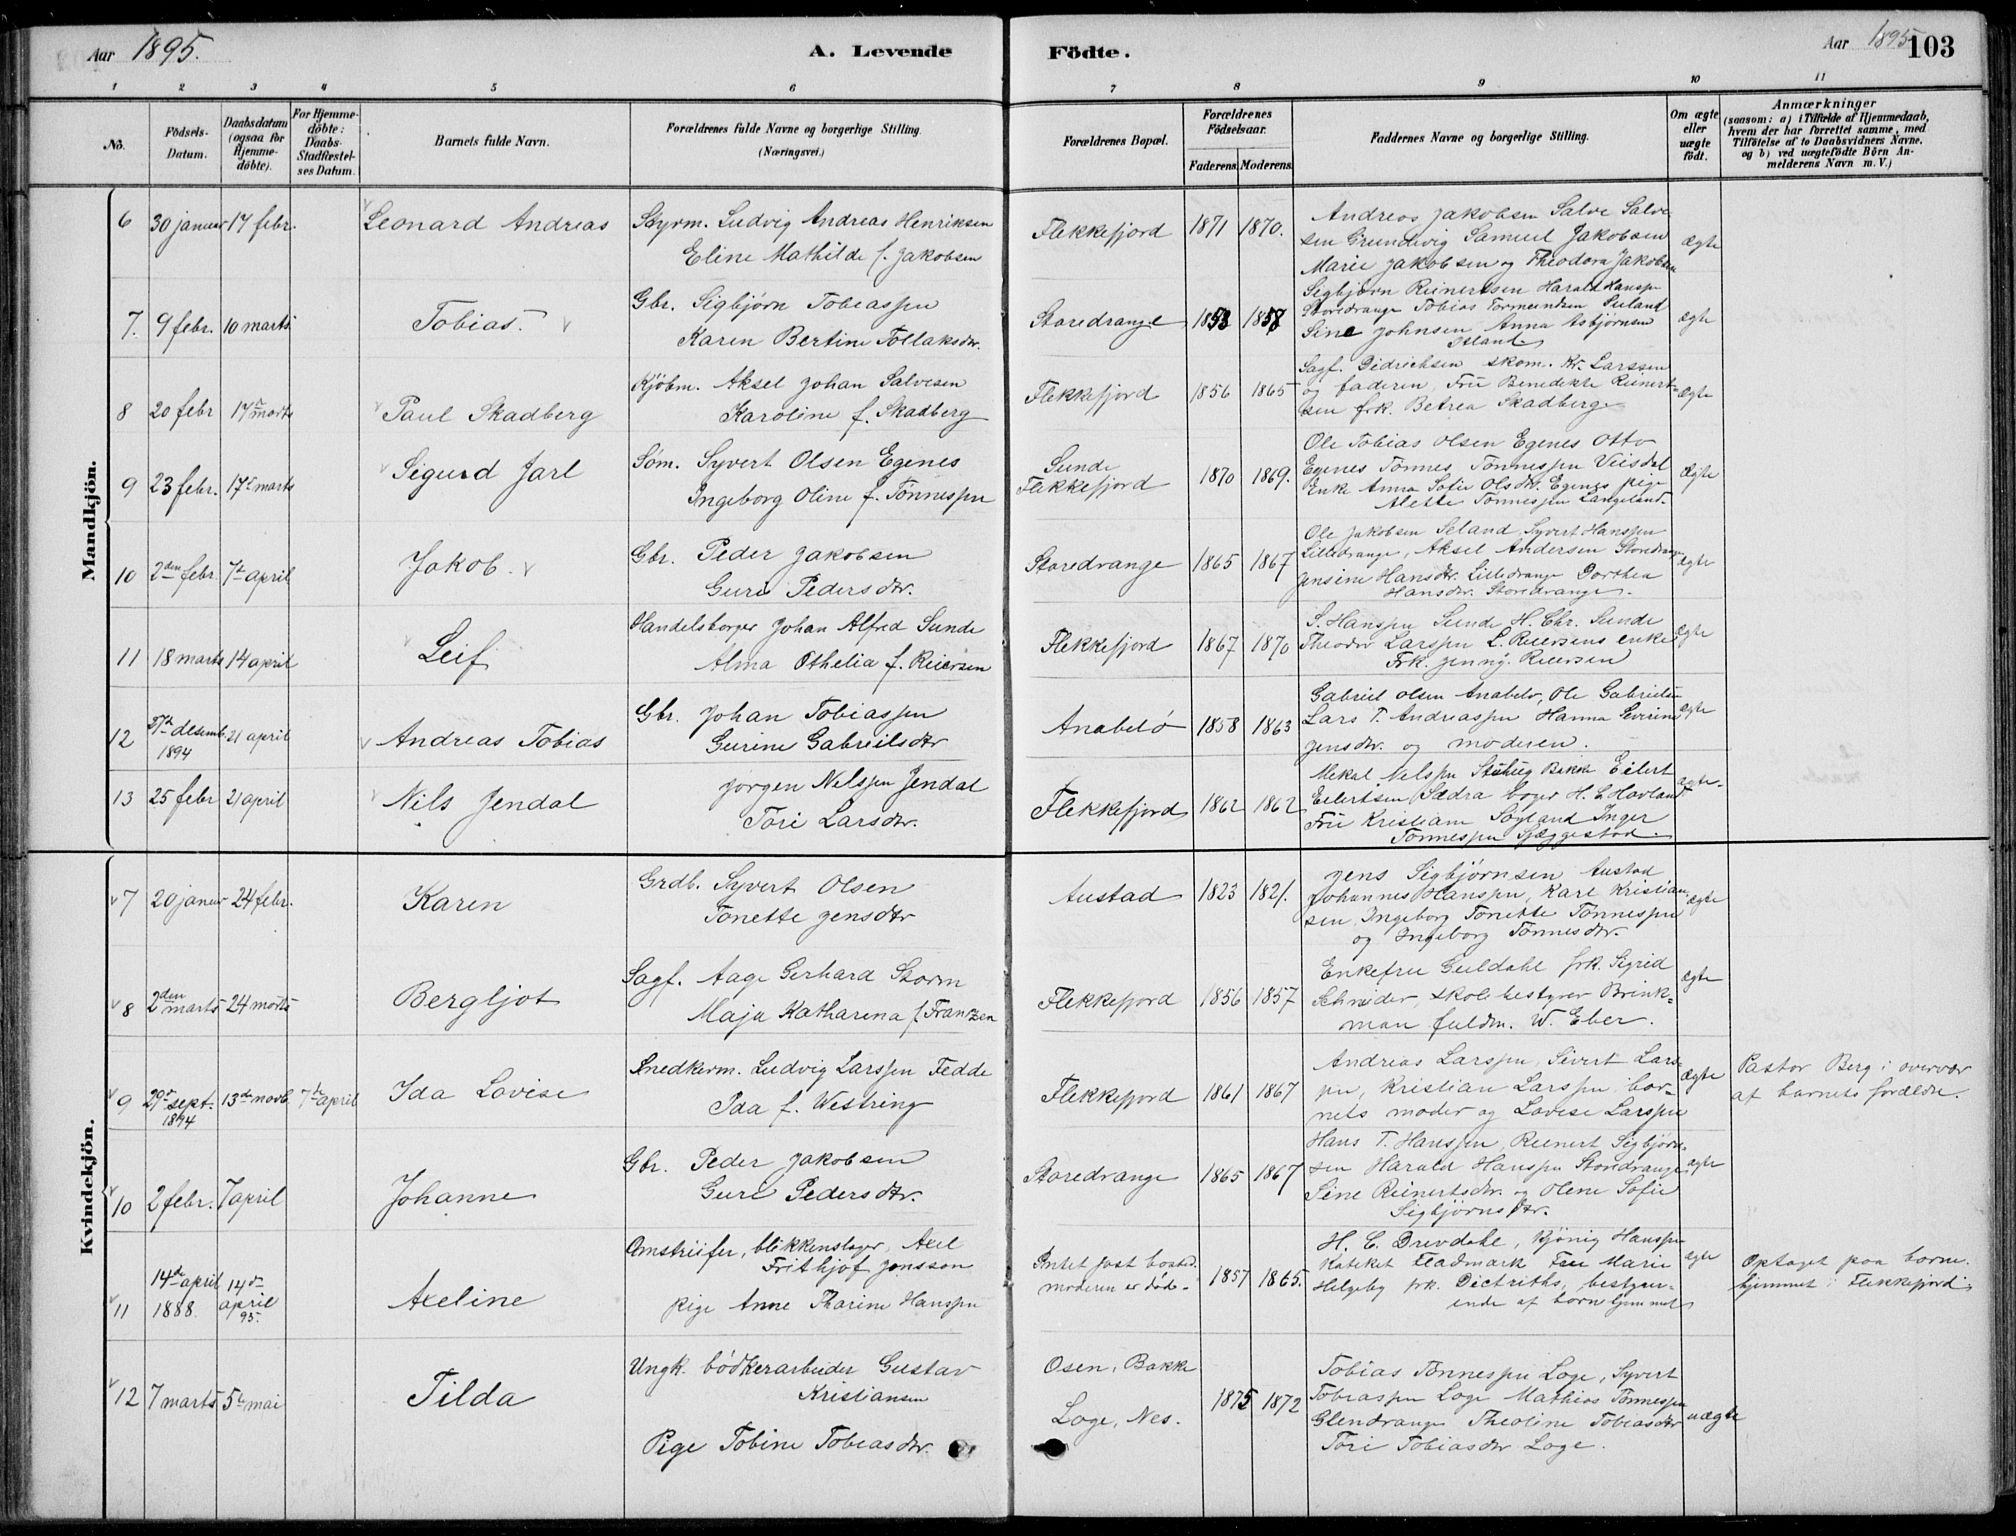 Aar 1895. A. Levende Födte. Aar 1895 103
1 2 3 4 5 6 7 8 9 10 11
No. Födsels-Datum. Daabsdatum (ogsaa for Hjemme-döbte). For Hjemme-döbte: Daabs-Stadfæstel-ses Datum. Barnets fulde Navn. Forældrenes fulde Navne og borgerlige Stilling. (Næringsvei.) Forældrenes Bopæl. Forældrenes Födselsaar. Faderens. Moderens. Faddernes Navne og borgerlige Stilling. Om ægte eller uægte födt. Anmærkninger (saasom: a) i Tilfælde af Hjemmedaab, hvem der har forrettet samme, med Tilföielse af to Daabsvidners Navne, og b) ved uægtefödte Börn An-melderens Navn m. V.)
Mandkjön.
6 30 januar 17 febr. Leonard Andreas Styrm. Ludvig Andreas Henriksen
Eline Mathilde f. Jakobsen
Flekkefjord 1871 1870.
Andreas Jakobsen Salve Salve
sen Grundevig Samuel Jakobsen
Marie Jakobsen og Theodora Jakobsen
ægte
7. 9 febr. 10 marts Tobias. Gbr. Sigbjørn Tobiassen
Karen Bertine Tollaksdtr.
Storedrange 1853 1857
Sigbjørn Reinertsen Harald Hanssen
Storedrange Tobias Tormundsen Seland
Sine Johnsen Anna Asbjørnsen
Seland
ægte
8 20 febr 17de marts Paul Skadberg Kjøbm. Aksel Johan Salvesen
Karoline f. Skadberg
Flekkefjord 1856 1865
Sagf. Didrichsen skom. Kr. Larssen
og faderen, Fru Benedikte Reinert-
sen frk. Betrea Skadberg
ægte
9 23 febr. 17de marts Sigurd Jarl Søm. Syvert Olsen Egenes
Ingeborg Oline f. Tønnessen
Sunde
Flekkefjord 1870 1869.
Ole Tobias Olsen Egenes Otto
Egenes Tønnes Tønnessen Veisdal
Enke Anna Sofie Olsdtr. Egenes pige
Alette Tønnessen Langeland.
Ægte
10 2den febr. 7de april Jakob. Gbr. Peder Jakobsen
Guri Pedersdtr.
Storedrange 1865 1867
Ole Jakobsen Seland Syvert Hanssen
Lilledrange, Aksel Andersen Storedrange
Jensine Hansdtr. Lilledrange Dorthea
Hansdtr. Storedrange.
ægte
11 18 marts 14 april Leif Handelsborger Johan Alfred Sunde
Alma Othelia f. Reiersen
Flekkefjord 1867 1870
S. Hanssen Sunde H. Chr. Sunde
Theodor Larssen L. Reiersens enke
Frk. Jenny Reiersen
ægte
12 desemb. 1894 21 april Andreas Tobias Gbr. Johan Tobiassen
Gurine Gabrielsdtr
Anabelø 1858 1863
Gabriel Olsen Anabelø, Ole Gabrielsen
Lars T. Andreassen Hanna Severine
Jensdtr. og moderen.
ægte
13 25 febr 21 april Nils Jendal Jørgen Nelssen Jendal
Tori Larsdtr.
Flekkefjord 1862 1862
Mekal Nelssen Bakke Eilert
Eilertsen Sædra H. C. Hovland
Fru Kristiane Søyland Inger
Tønnessen
ægte.
Kvindekjön.
7 20 januar 24 febr. Karen Grdb. Syvert Olsen
Tonette Jensdtr
Austad 1823 1821.
Jens Sigbjørnsen Austad
Johannes Hanssen, Karl Kristian-
sen, Ingeborg Tonette Tønnessen
og Ingeborg Tønnesdtr.
ægte
8 2den marts 24 marts Bergljot Sagf. Aage Gerhard Storm
Maja Katharina f. Frantzen
Flekkefjord 1856 1857
Enkefru Guldahl frk. Sigrid
Schneider, skolebestyrer Brink-
man fuldm. W. Eber.
ægte
9 29de sept. 1894 13de novb. 7de april Ida Lovise Snedkerm. Ludvig Larssen Fedde
Ida f. Westring
Flekkefjord 1861 1867
Andreas Larssen, Sivert Lars-
sen, Kristian Larssen, bar-
nets moder og Lovise Larssen
ægte
Pastor Berg i overvær
af barnets forældre.
10 2 febr. 7 april Johanne Gbr. Peder Jakobsen
Guri Pedersdtr.
Storedrange 1865 1867
Hans T. Hanssen, Reinert Sigbjørn-
sen Harald Hanssen Storedrange
Sine Reinertsdtr. og Oline Sofie
Sigbjørnsdtr.
ægte
11 14de april 1888. 14de april 95. Axeline Omstreifer, blikkenslager, Axel
Frithjof Jonsson
Pige Anne Tharine Hanssen
Intet fast bosted.
moderen er død. 1857 1865.
H. C. Drevdahl, Kjønig Hanssen
Kateket Fladmark Fru Marie
Helgeby frk. Dietrichs, bestyrer-
inde af børnehjemmet
ægte
Optaget paa børne-
hjemmet i Flekkefjord
12 7 marts 5te mai Tilda Ungk. bødkerarbeider Gustav
Kristiansen
Pige Tobine Tobiasdtr.
Osen, Bakke
Loge, Nes. 1875 1872
Tobias Tønnessen Loge, Syvert
Tobiassen Loge Mathias Tønnessen
Glendrange Theoline Tobiasdtr
Tori Tobiasdtr Loge.
uægte